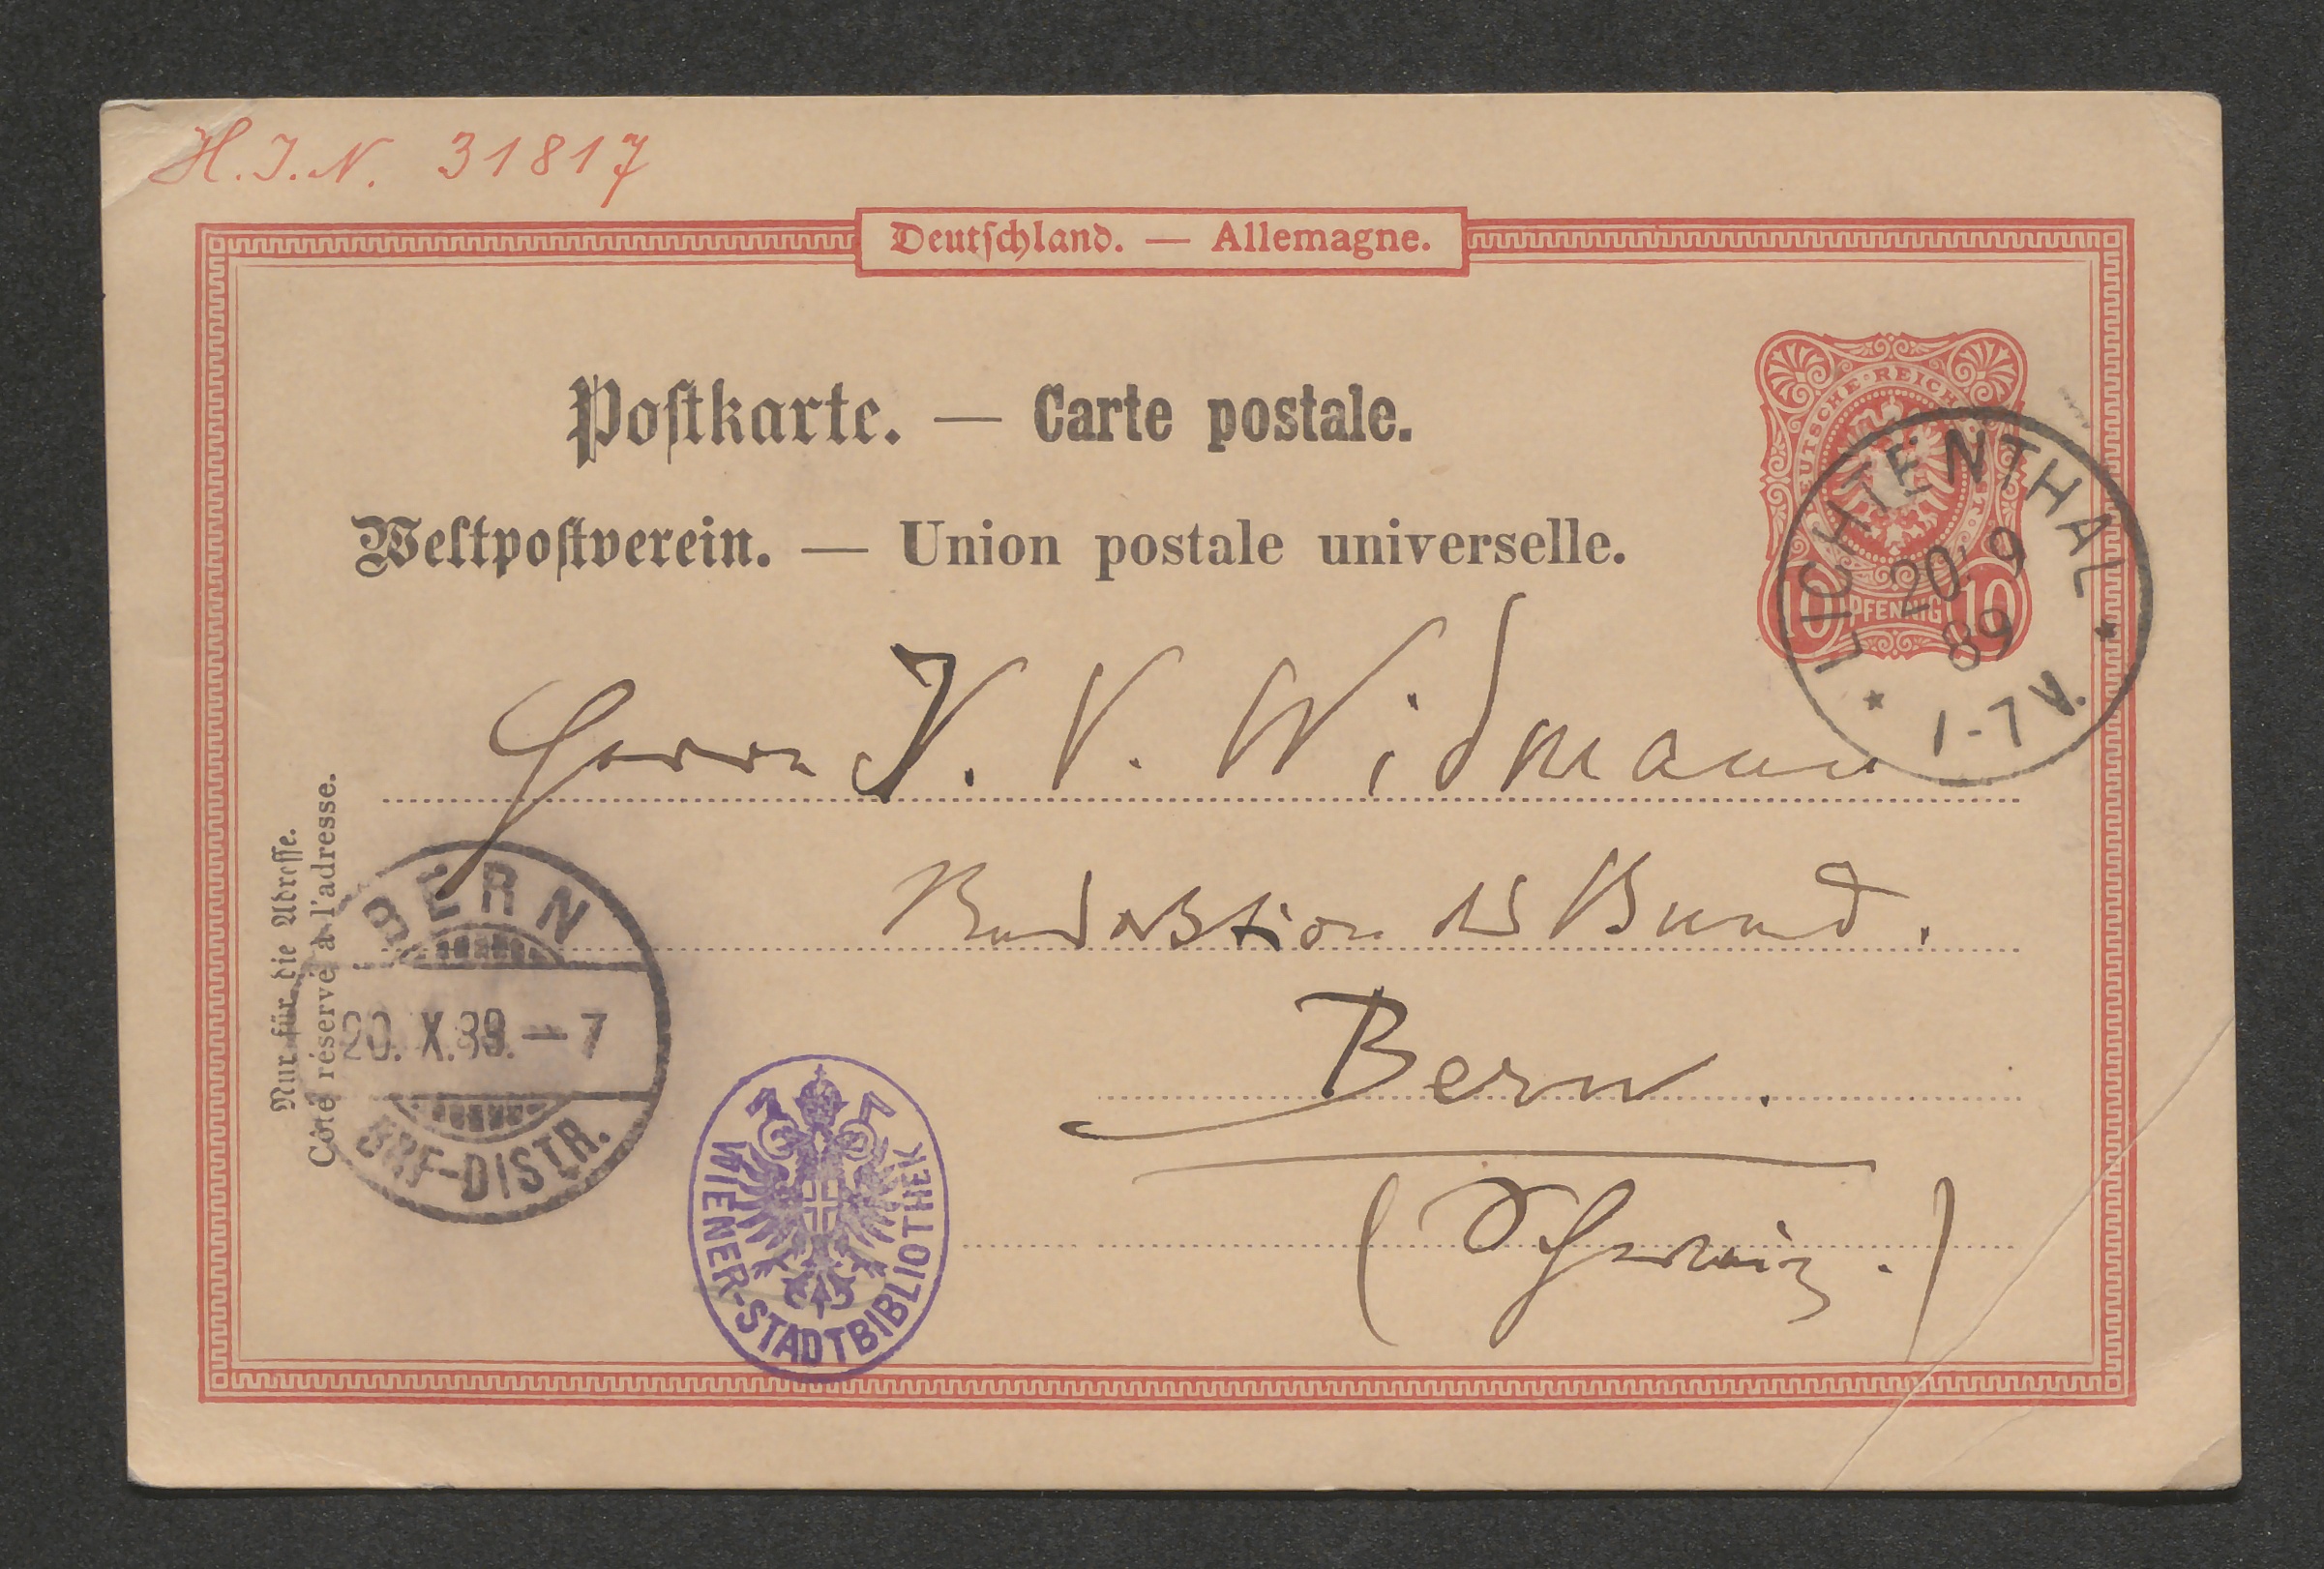 H.I.N. 31817
Deutschland. — Allemagne.
Postkarte. — Carte postale.
Weltpostverein. — Union postale universelle.
DEUTSCHE REICHSPOST
10 PFENNIG 10
LICHTENTHAL
20 9
89
1-7 V.
Herrn J. V. Widmann
Redaktion des Bund.
Bern.
(Schweiz.)
Nur für die Adresse.
Côté réservé à l'adresse.
BERN
20. X.89.—7
BRF-DISTR.
WIENER-STADTBIBLIOTHEK